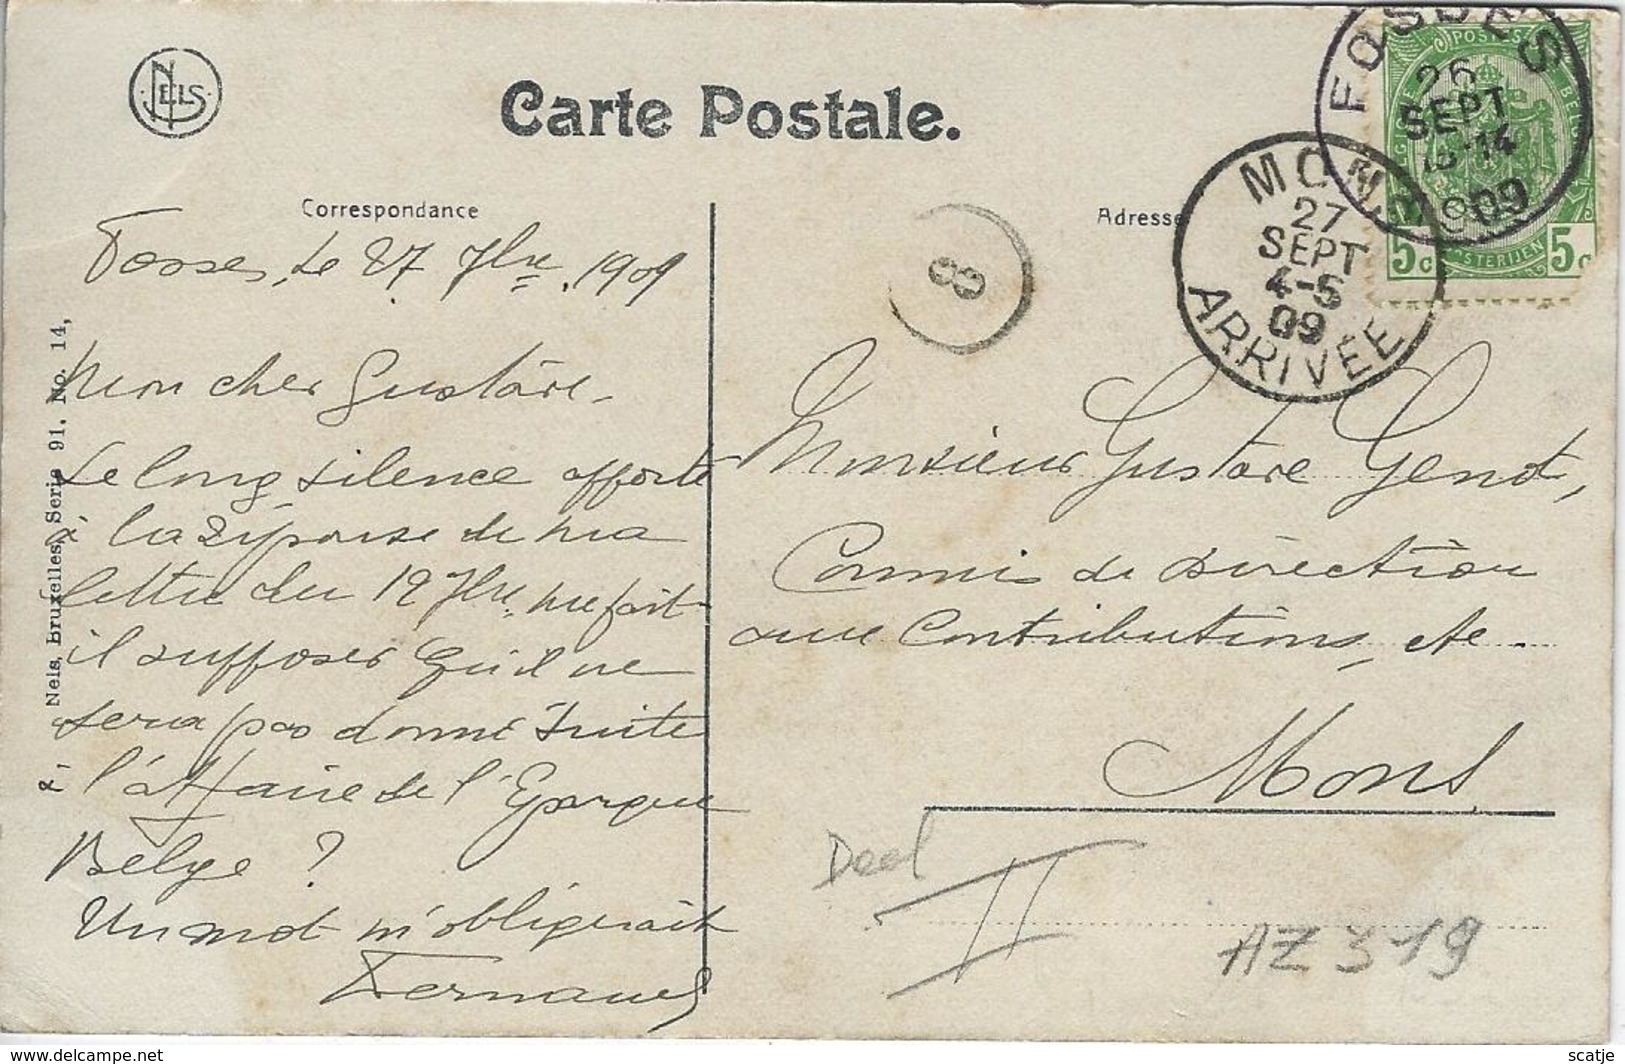 NELS
Carte Postale.
Correspondance
Adresse
FOSSES
26
SEPT
13-14
09
POSTES
5c
5c
MONS
27
SEPT
4-5
09
ARRIVÉE
8
Nels, Bruxelles, Serie 91, No. 14,
Fosses, le 27 7bre 1909
Mon cher Gustave.
Le long silence apporté
à la réponse de ma
lettre du 12 7bre me fait-
il supposer qu'il ne
sera pas donné suite
à l'affaire de l'Epargne
Belge ?
Un mot m'obligerait
Fernand
Monsieur Gustave Genot,
Commis de Direction
aux Contributions, etc.
Mons
Deel
II
AZ 319
https://www.delcampe.net
scatje